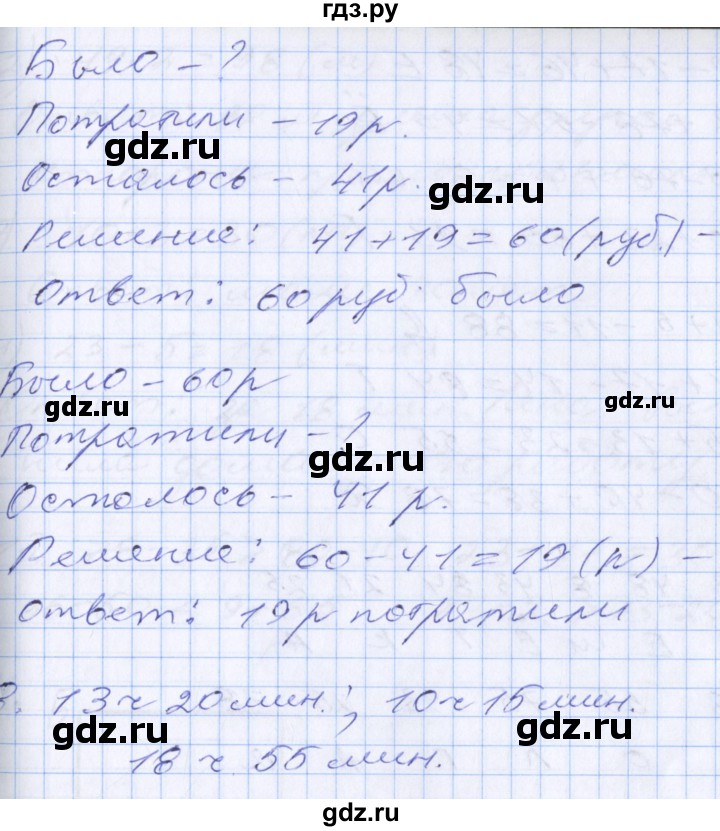 гдз.ру
Было - ?
Потратили - 19 р.
gdz.ru
Осталось - 41 р.
gdz.ru
Решение: 41 + 19 = 60 (руб.) -
Ответ: 60 руб. было
Было - 60 р
gdz.ru
gdz.ru
Потратили - ?
gdz.ru
Осталось - 41 р.
Решение: 60 - 41 = 19 (р) -
Ответ: 19 р потратили
3. 13 ч 20 мин.; 10 ч 15 мин.
gdz.ru
gdz.ru
18 ч. 55 мин.
gdz.ru